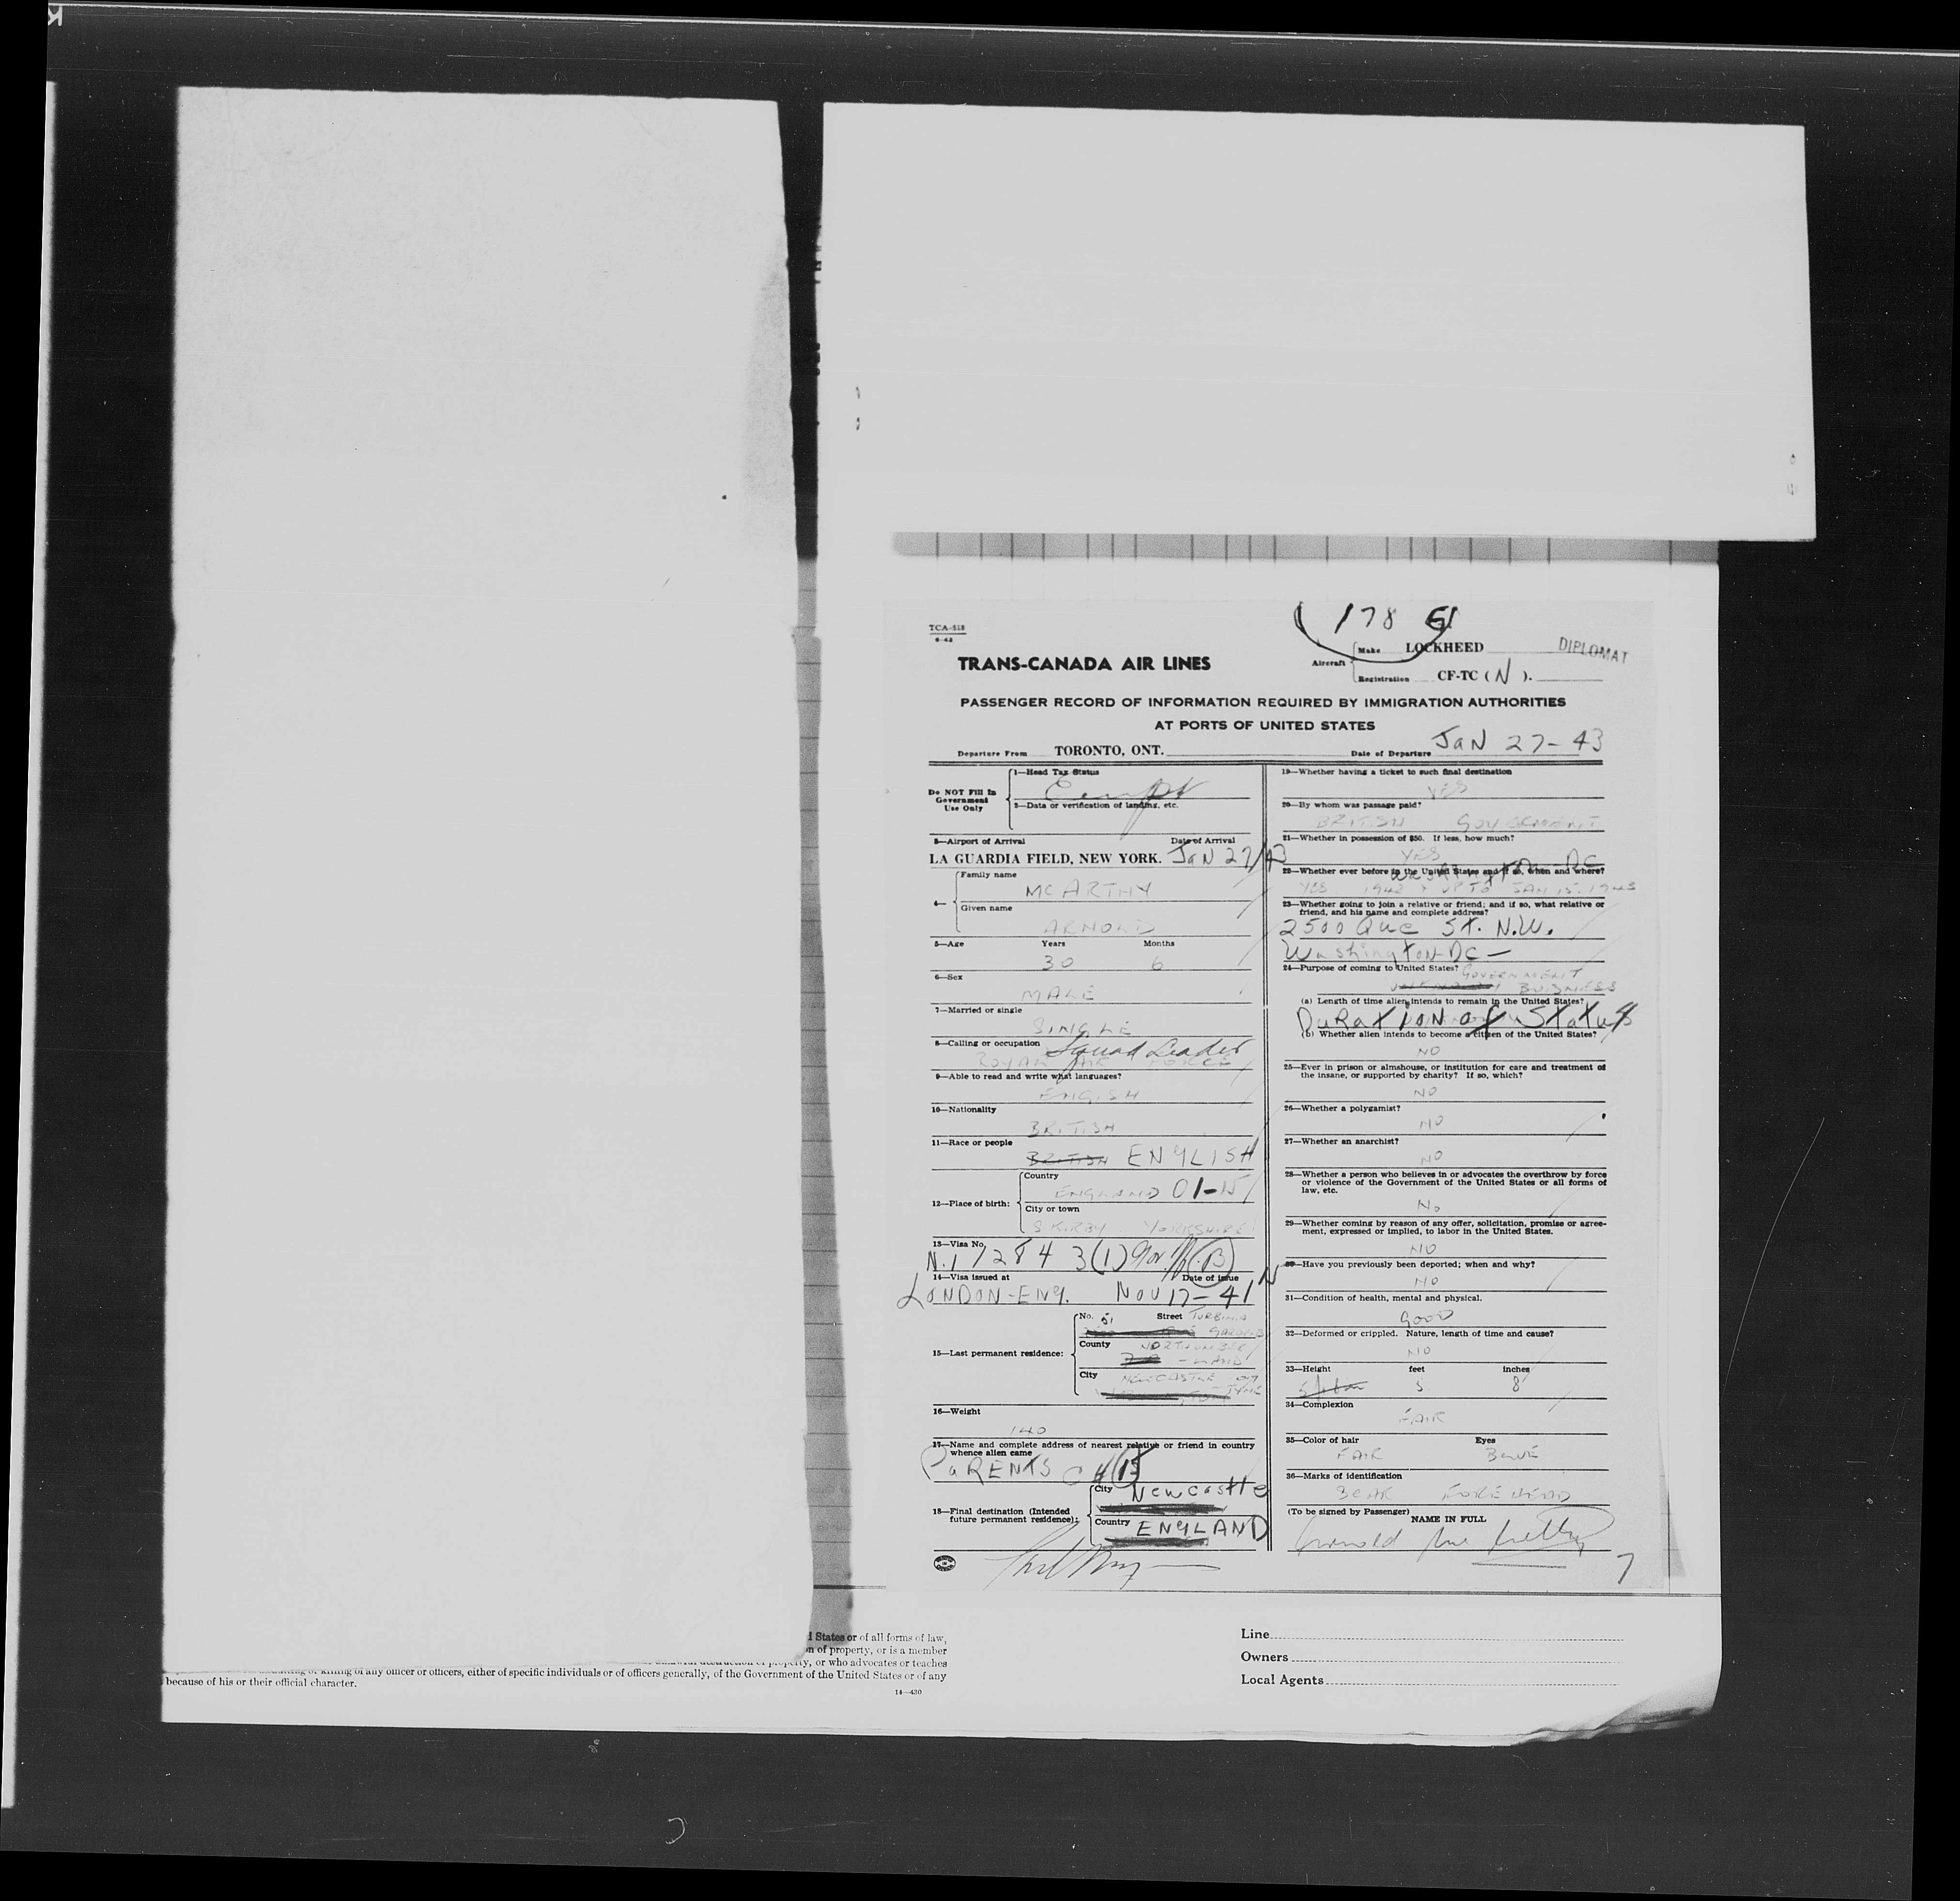 178 51
TCA-518
6-42
TRANS-CANADA AIR LINES
Aircraft
Make LOCKHEED
Registration CF-TC (N).
DIPLOMAT
PASSENGER RECORD OF INFORMATION REQUIRED BY IMMIGRATION AUTHORITIES
AT PORTS OF UNITED STATES
Departure From TORONTO, ONT. Date of Departure JAN 27-43
Do NOT Fill In
Government
Use Only
1—Head Tax Status
Exempt
2—Data or verification of landing, etc.
3—Airport of Arrival Date of Arrival
LA GUARDIA FIELD, NEW YORK. JAN 27/43
4—
Family name
MCARTHY
Given name
ARNOLD
5—Age Years Months
30 6
6—Sex
MALE
7—Married or single
SINGLE
8—Calling or occupation Squad Leader
ROYAL AIR FORCE
9—Able to read and write what languages?
ENGISH
10—Nationality
BRITISH
11—Race or people
BRITISH ENGLISH
12—Place of birth:
Country
ENGLAND 01-15
City or town
S KIRBY YORKSHIRE
13—Visa No.
N.17284 3(1) (B)
14—Visa issued at Date of issue
LONDON-ENG. NOV 17-41
15—Last permanent residence:
No. 51 Street TURBINIA
GARDENS
County NORTHUMBER
-LAND
City NEWCASTLE ON
TYNE
16—Weight
140
17—Name and complete address of nearest relative or friend in country
whence alien came
PARENTS 15
18—Final destination (Intended
future permanent residence):
City Newcastle
Country ENGLAND
19—Whether having a ticket to such final destination
YES
20—By whom was passage paid?
BRITISH GOVERNMENT
21—Whether in possession of $50. If less, how much?
YES
Washington DC
22—Whether ever before in the United States and if so, when and where?
YES 1942 UP TO JAN 15. 1943
23—Whether going to join a relative or friend; and if so, what relative or
friend, and his name and complete address?
2500 Que St. N.W.
Washington DC—
24—Purpose of coming to United States? GOVERNMENT
BUISNESS
(a) Length of time alien intends to remain in the United States?
DURATION of Status
(b) Whether alien intends to become a citizen of the United States?
NO
25—Ever in prison or almshouse, or institution for care and treatment of
the insane, or supported by charity? If so, which?
NO
26—Whether a polygamist?
NO
27—Whether an anarchist?
NO
28—Whether a person who believes in or advocates the overthrow by force
or violence of the Government of the United States or all forms of
law, etc.
No
29—Whether coming by reason of any offer, solicitation, promise or agree-
ment, expressed or implied, to labor in the United States.
NO
30—Have you previously been deported; when and why?
NO
31—Condition of health, mental and physical.
GOOD
32—Deformed or crippled. Nature, length of time and cause?
NO
33—Height feet inches
5 8
34—Complexion
FAIR
35—Color of hair Eyes
FAIR BLUE
36—Marks of identification
SCAR FOREHEAD
(To be signed by Passenger)
NAME IN FULL
Arnold
7
d States or of all forms of law,
n of property, or is a member
property, or who advocates or teaches
killing of any officer or officers, either of specific individuals or of officers generally, of the Government of the United States or of any
because of his or their official character.
14—430
Line
Owners
Local Agents